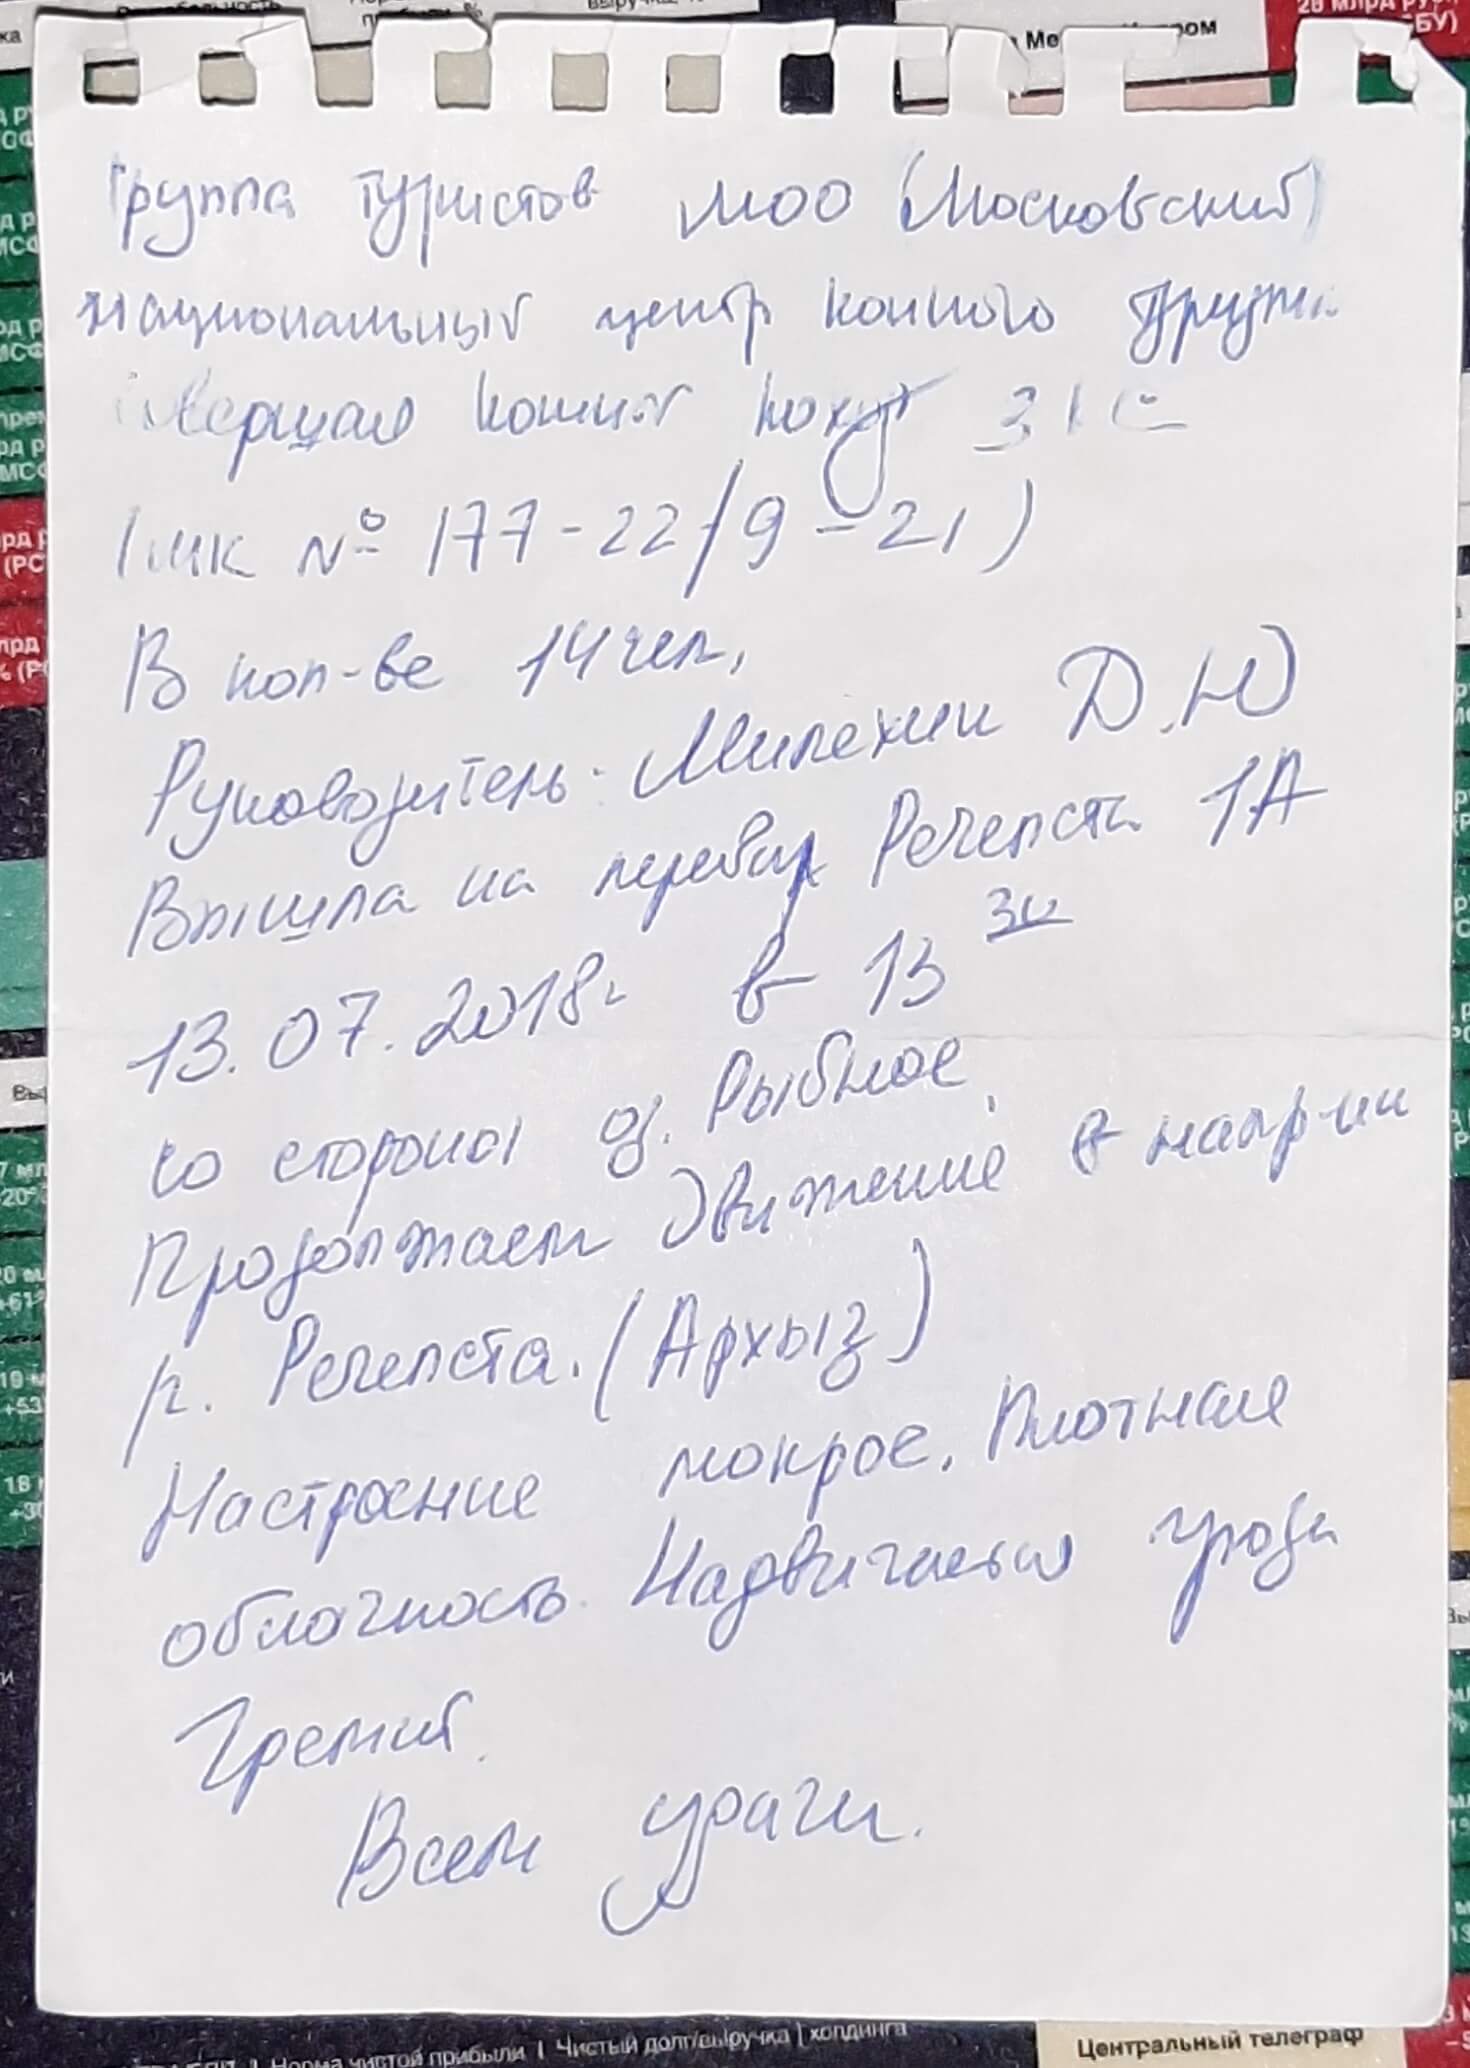 Выручка, %
Группа туристов МОО (Московский)
национальный центр конного туризма
совершая конный поход 3 к.с.
(мк № 177-22/9-21)
В кол-ве 14 чел,
Руководитель: Милехин Д.Ю
Вышла на перевал Речепста 1А
13.07.2018г в 13 30
со стороны оз. Рыбное.
Продолжаем движение в напр-ии
р. Речепста. (Архыз)
Настроение мокрое. Плотная
облачность. Надвигается гроза
Гремит.
Всем удачи.
Норма чистой прибыли | Чистый долг/выручка | холдинга
Центральный телеграф